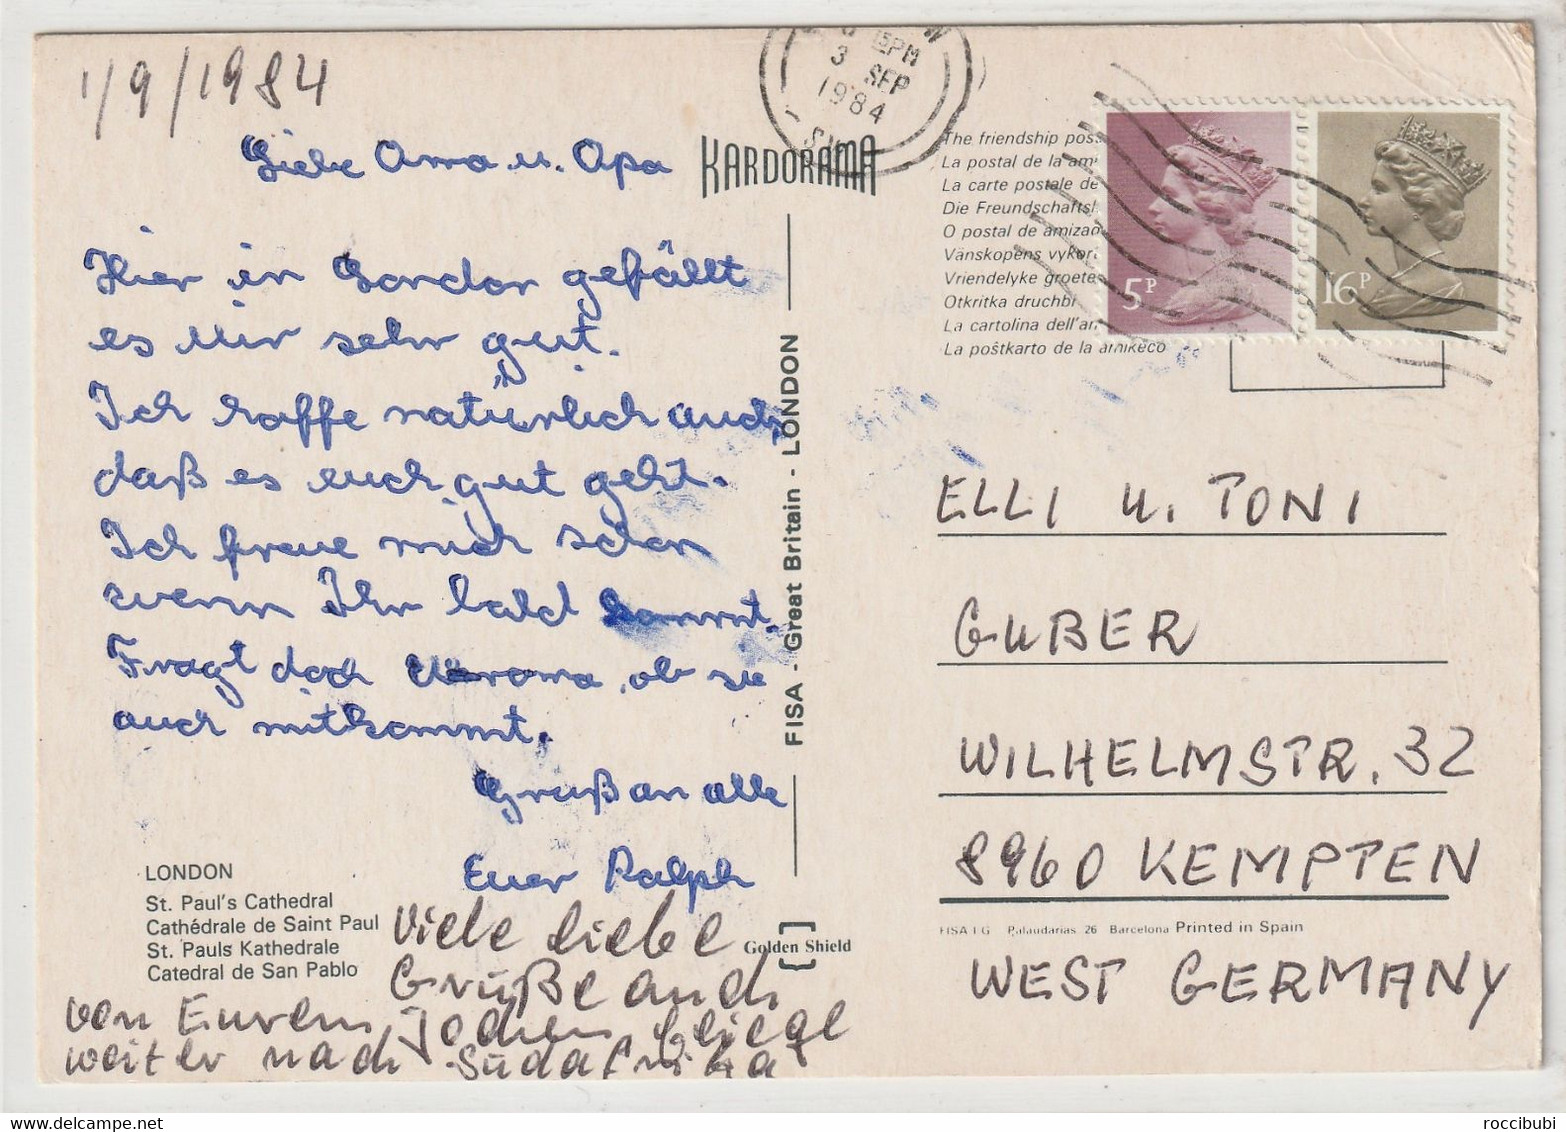 1/9/1984
Liebe Oma u. Opa
Hier in London gefällt
es mir sehr gut.
Ich hoffe natürlich auch,
daß es euch gut geht.
Ich freue mich schon
wenn Ihr bald kommt.
Fragt doch Uroma, ob sie
auch mitkommt.
Gruß an alle
Euer Ralph
Viele liebe
Grüße auch
von Eurem Jochen, fliege
weiter nach Südafrika
LONDON
St. Paul's Cathedral
Cathédrale de Saint Paul
St. Pauls Kathedrale
Catedral de San Pablo
KARDORAMA
FISA - Great Britain - LONDON
Golden Shield
PM
3 SEP
1984
The friendship pos
La postal de la am
La carte postale de
Die Freundschafts
O postal de amizad
Vänskopens vykor
Vriendelyke groete
Otkritka druchbi
La cartolina dell'an
La poŝtkarto de la amikeco
5P
16P
ELLI u. TONI
GUBER
WILHELMSTR. 32
8960 KEMPTEN
FISA I G Palaudarias 26 Barcelona Printed in Spain
WEST GERMANY
roccibubi